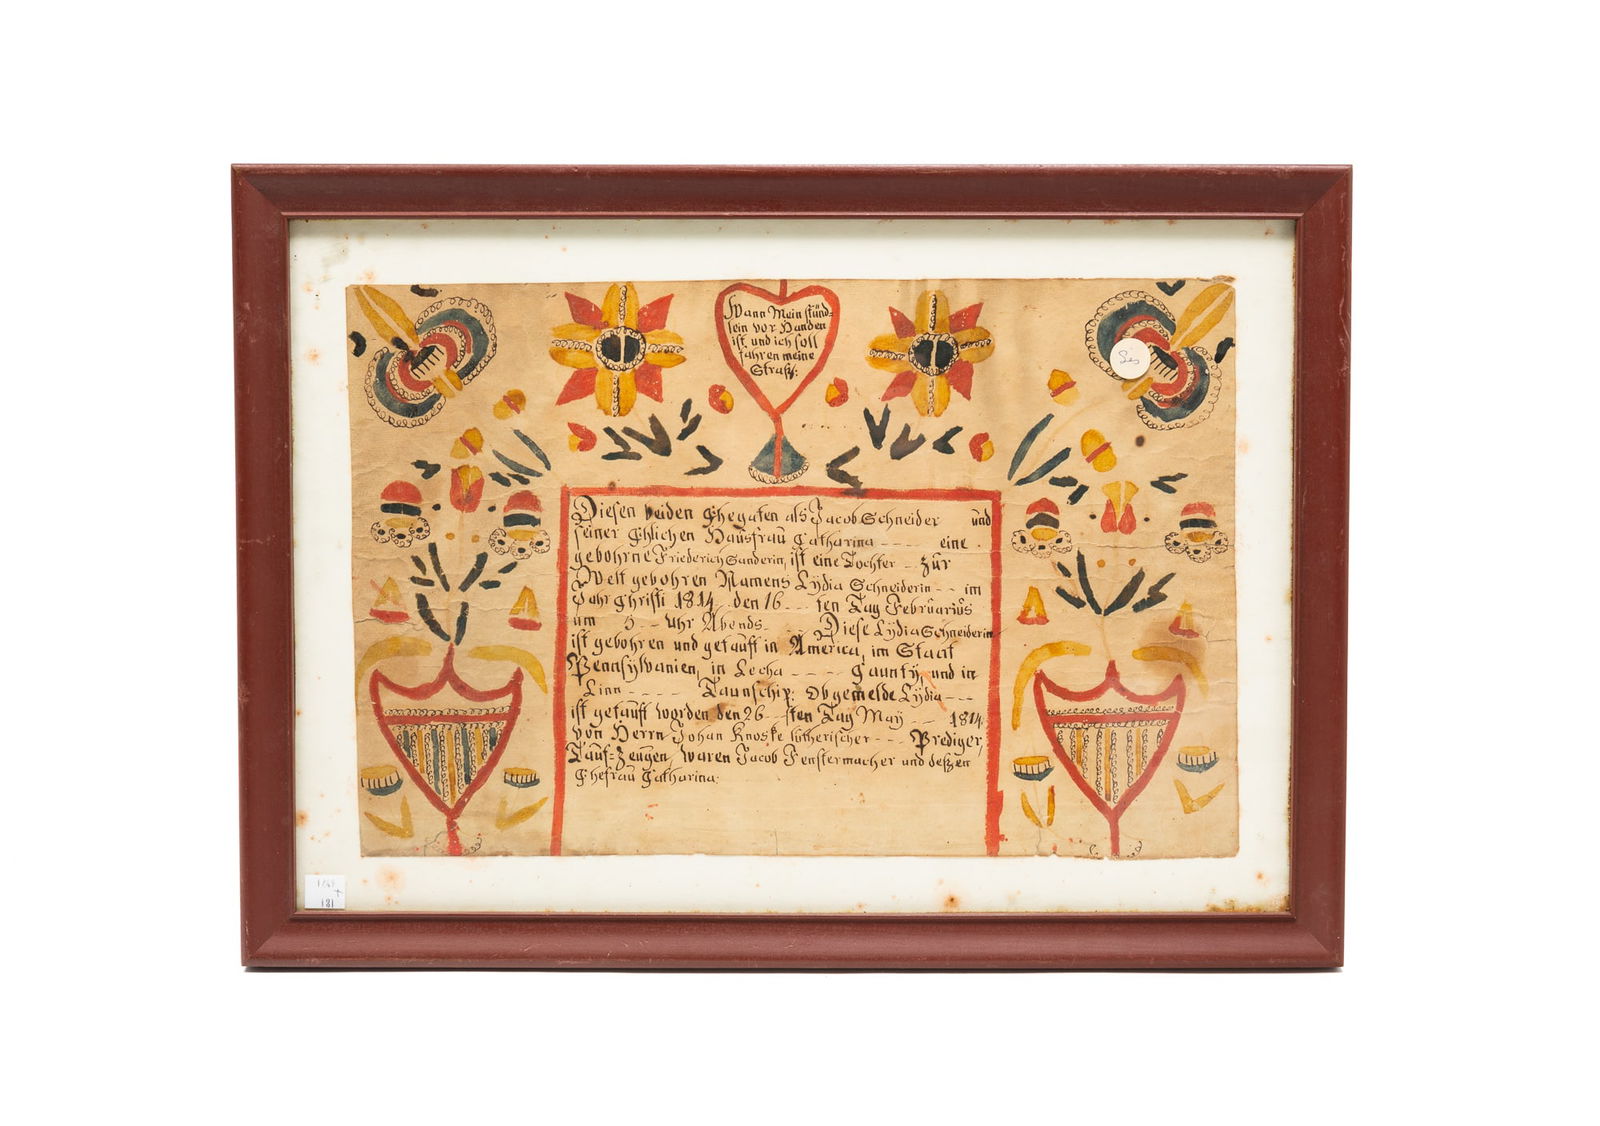 Wann Mein stünd=
lein vor Handen
ist, und ich soll
fahren meine
Straß:
Diesen beiden Ehegaten als Jacob Schneider und
seiner Ehlichen Haüsfraü Catharina - - - - eine
gebohrne Friederich Sanderin, ist eine Tochter - zür
Welt gebohren Namens Lydia Schneiderin - - im
Jahr Christi 1814, den 16 - - - ten Tag Febrüariüs
üm 5 - - Uhr Abends - - - Diese Lydia Schneiderin
ist gebohren und getaüft in America, im Staat
Pennsylvanien, in Lecha - - - - Caunty, und in
Linn - - - - Taunschip: Obgemelde Lydia - - -
ist getauft worden den 26 - - sten Tag May - - 1814
von Herrn Johan Knoske lütherischer - - - Prediger,
Taüf=Zeügen, waren Jacob Fenstermacher und deßen
Ehefraü Catharina:
181